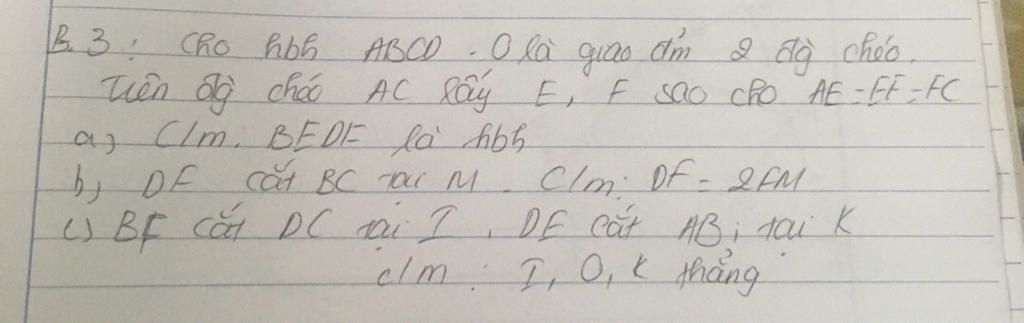 B.3: Cho hbh ABCD. O là giao đ'm 2 đg̀ chéo.
Trên đg̀ chéo AC lấy E, F sao cho AE = EF = FC
a) C/m. BEDF là hbh
b) DF cắt BC tại M. C/m: DF = 2FM
c) BF cắt DC tại I, DE cắt AB; tại K
c/m: I, O, K thẳng